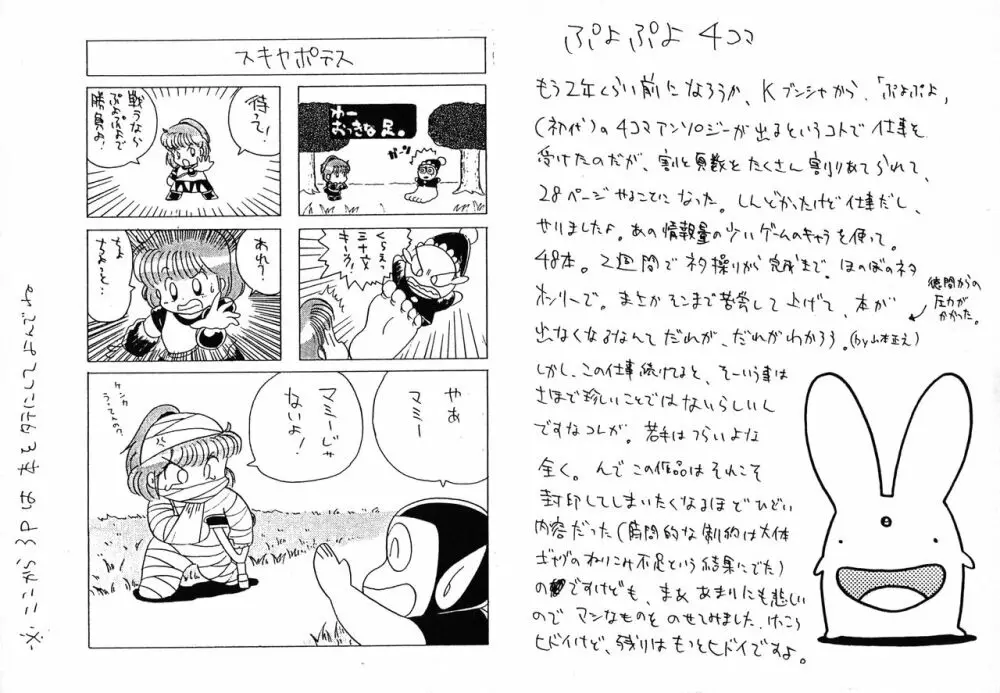 ぷよぷよ 4コマ
もう2年くらい前になろうか、Kブンシャから、「ぷよぷよ」
(初代)の4コマアンソロジーが出るというコトで仕事を
受けたのだが、割と頁数をたくさん割りあてられて、
28ページやることになった。しんどかったけど仕事だし、
やりましたよ。あの情報量の少いゲームのキャラを使って。
48本。2週間でネタ操りから完成まで。ほのぼのネタ
オンリーで。まさかそこまで苦労して上げて、本が
出なくなるなんてだれが、だれがわかろう。(by山本正之)
徳間からの
圧力が
かかった。
しかし、この仕事続けてると、そーいう事は
さほど珍しいことではないらしいん
ですなコレが。若手はつらいよな
全く。んでこの作品はそれこそ
封印してしまいたくなるほどひどい
内容だった(時間的な制約は大体
ギャグのねりこみ不足という結果にでた)
のですけども、まぁあまりにも悲しい
のでマシなものをのせてみました。けっこう
ヒドイけど、残りはもっとヒドイですよ。
スキヤポデス
わー
おっきな足。
ガーン
待って!
戦うなら
ぷよぷよで
勝負よ!
くらえ
三十六文
キーック!
あれ?
ちょ
ちょっと…
やあ
マミー
マミーじゃ
ないよ!
ケンカ
うってんの?
※ ここから3Pは本をタテにしてよんでね